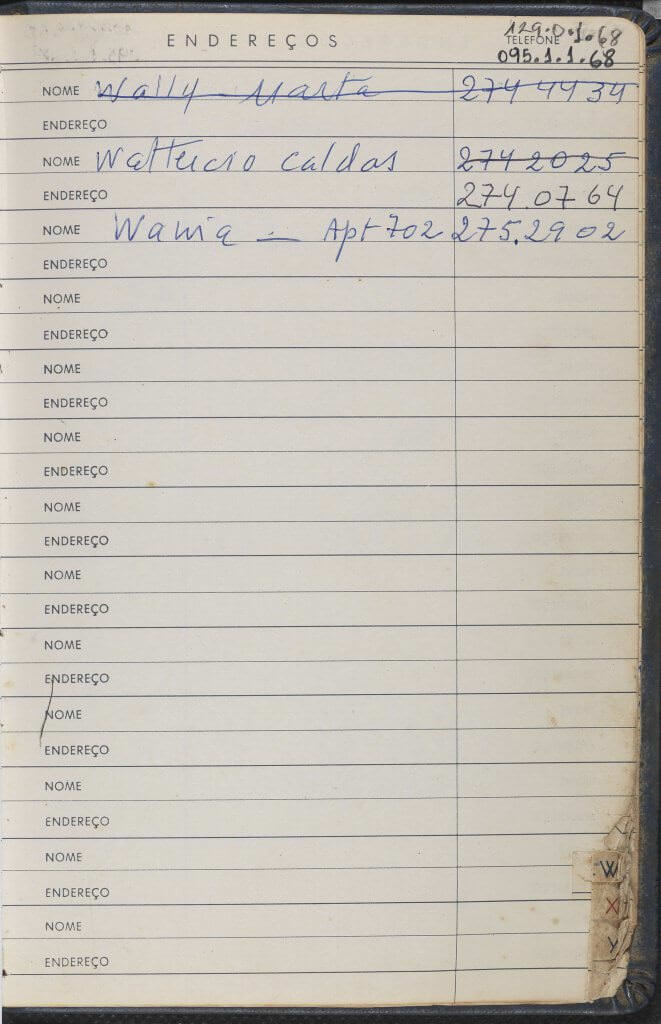 129.0.1.68
ENDEREÇOS TELEFONE
095.1.1.68
NOME Wally - Marta 274 4434
ENDEREÇO
NOME Waltercio Caldas 274 2025
ENDEREÇO 274.0764
NOME Wania — Apt 702 275.2902
ENDEREÇO
NOME
ENDEREÇO
NOME
ENDEREÇO
NOME
ENDEREÇO
NOME
ENDEREÇO
NOME
ENDEREÇO
NOME
ENDEREÇO
NOME
ENDEREÇO
NOME
ENDEREÇO
NOME
W
ENDEREÇO
X
NOME
Y
ENDEREÇO